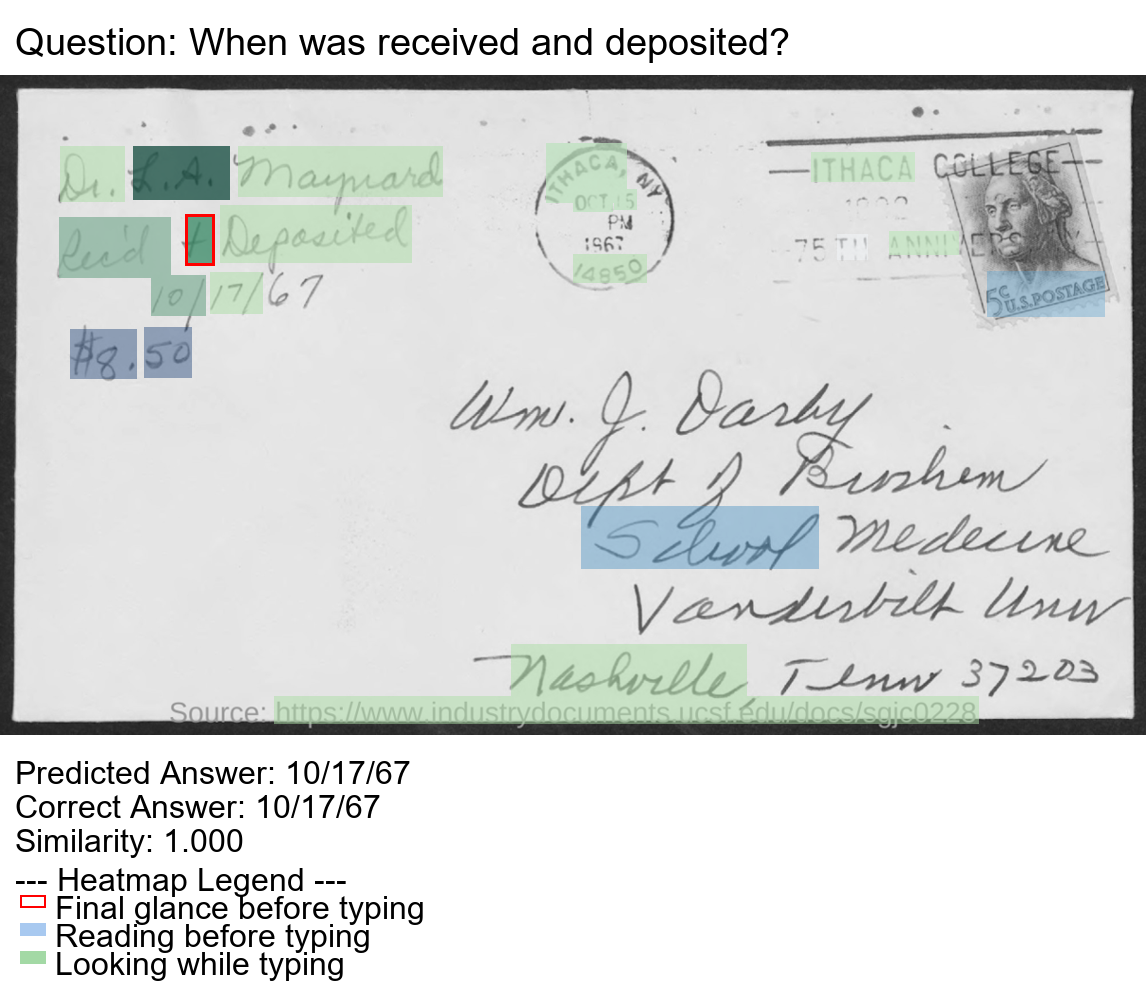 Question: When was received and deposited?
Dr. L.A. Maynard
Rec'd + Deposited
10/17/67
$8.50
ITHACA, NY
OCT 15
PM
1967
14850
ITHACA COLLEGE
75 TH ANNIVERS
5c U.S.POSTAGE
Wm. J. Darby
Dept of Biochem
School Medecine
Vanderbilt Univ
Nashville, Tenn 37203
Source: https://www.industrydocuments.ucsf.edu/docs/sgjc0228
Predicted Answer: 10/17/67
Correct Answer: 10/17/67
Similarity: 1.000
--- Heatmap Legend ---
Final glance before typing
Reading before typing
Looking while typing